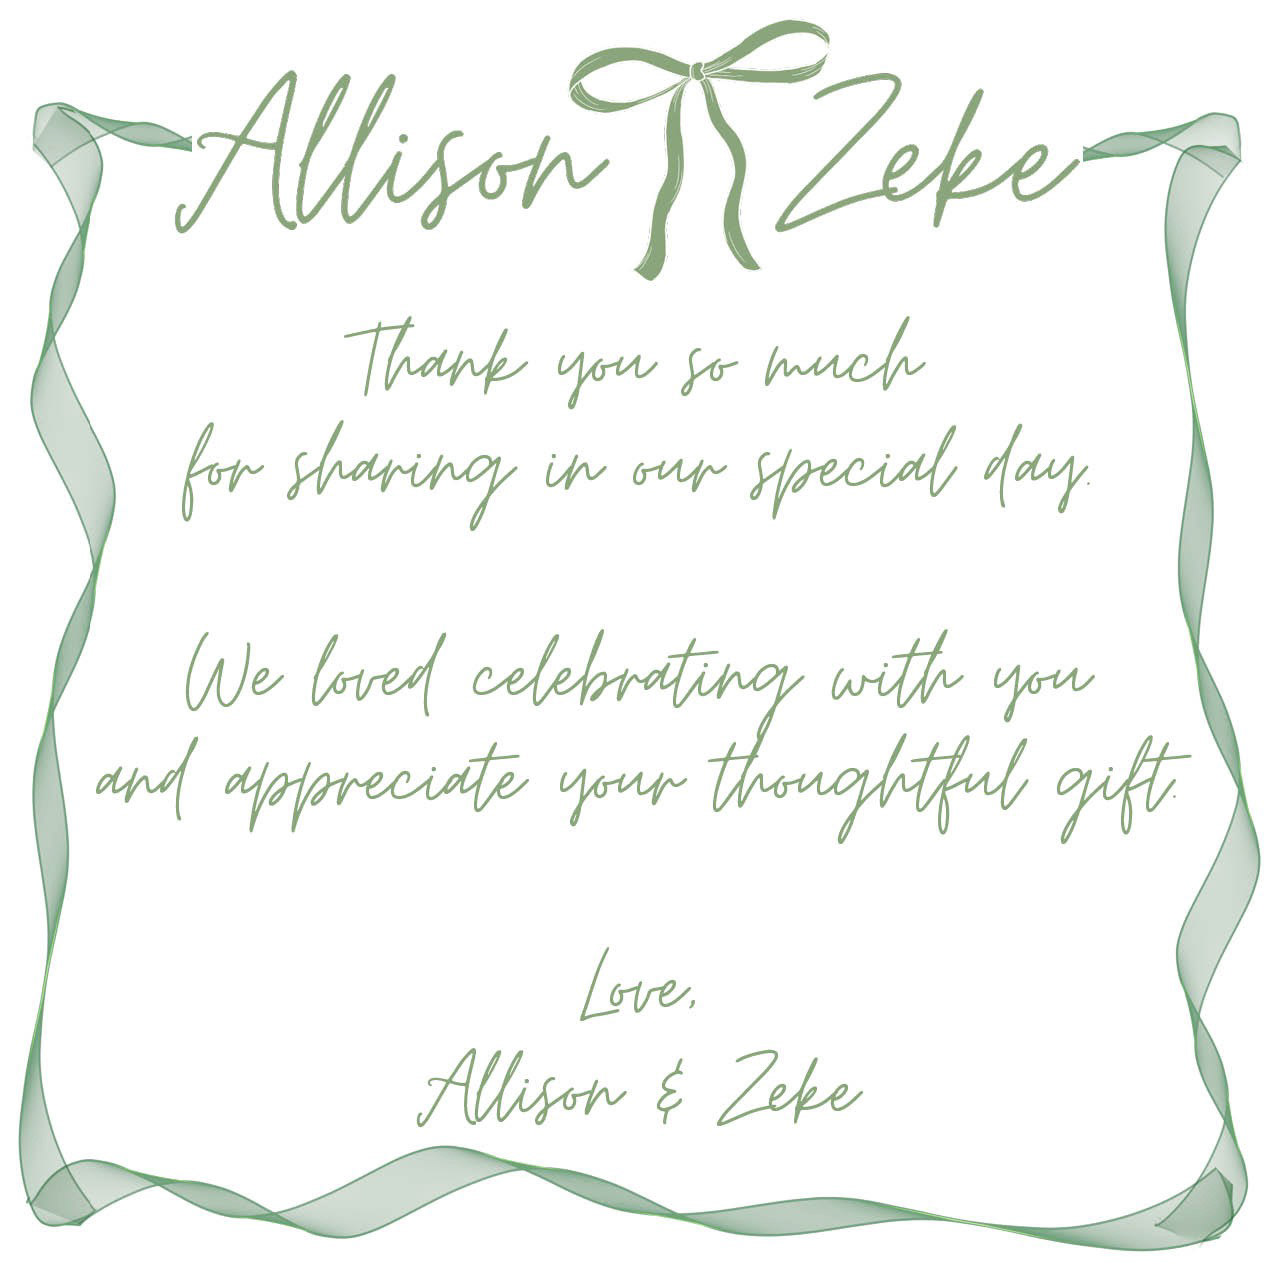 Allison Zeke
Thank you so much
for sharing in our special day.
We loved celebrating with you
and appreciate your thoughtful gift.
Love,
Allison & Zeke